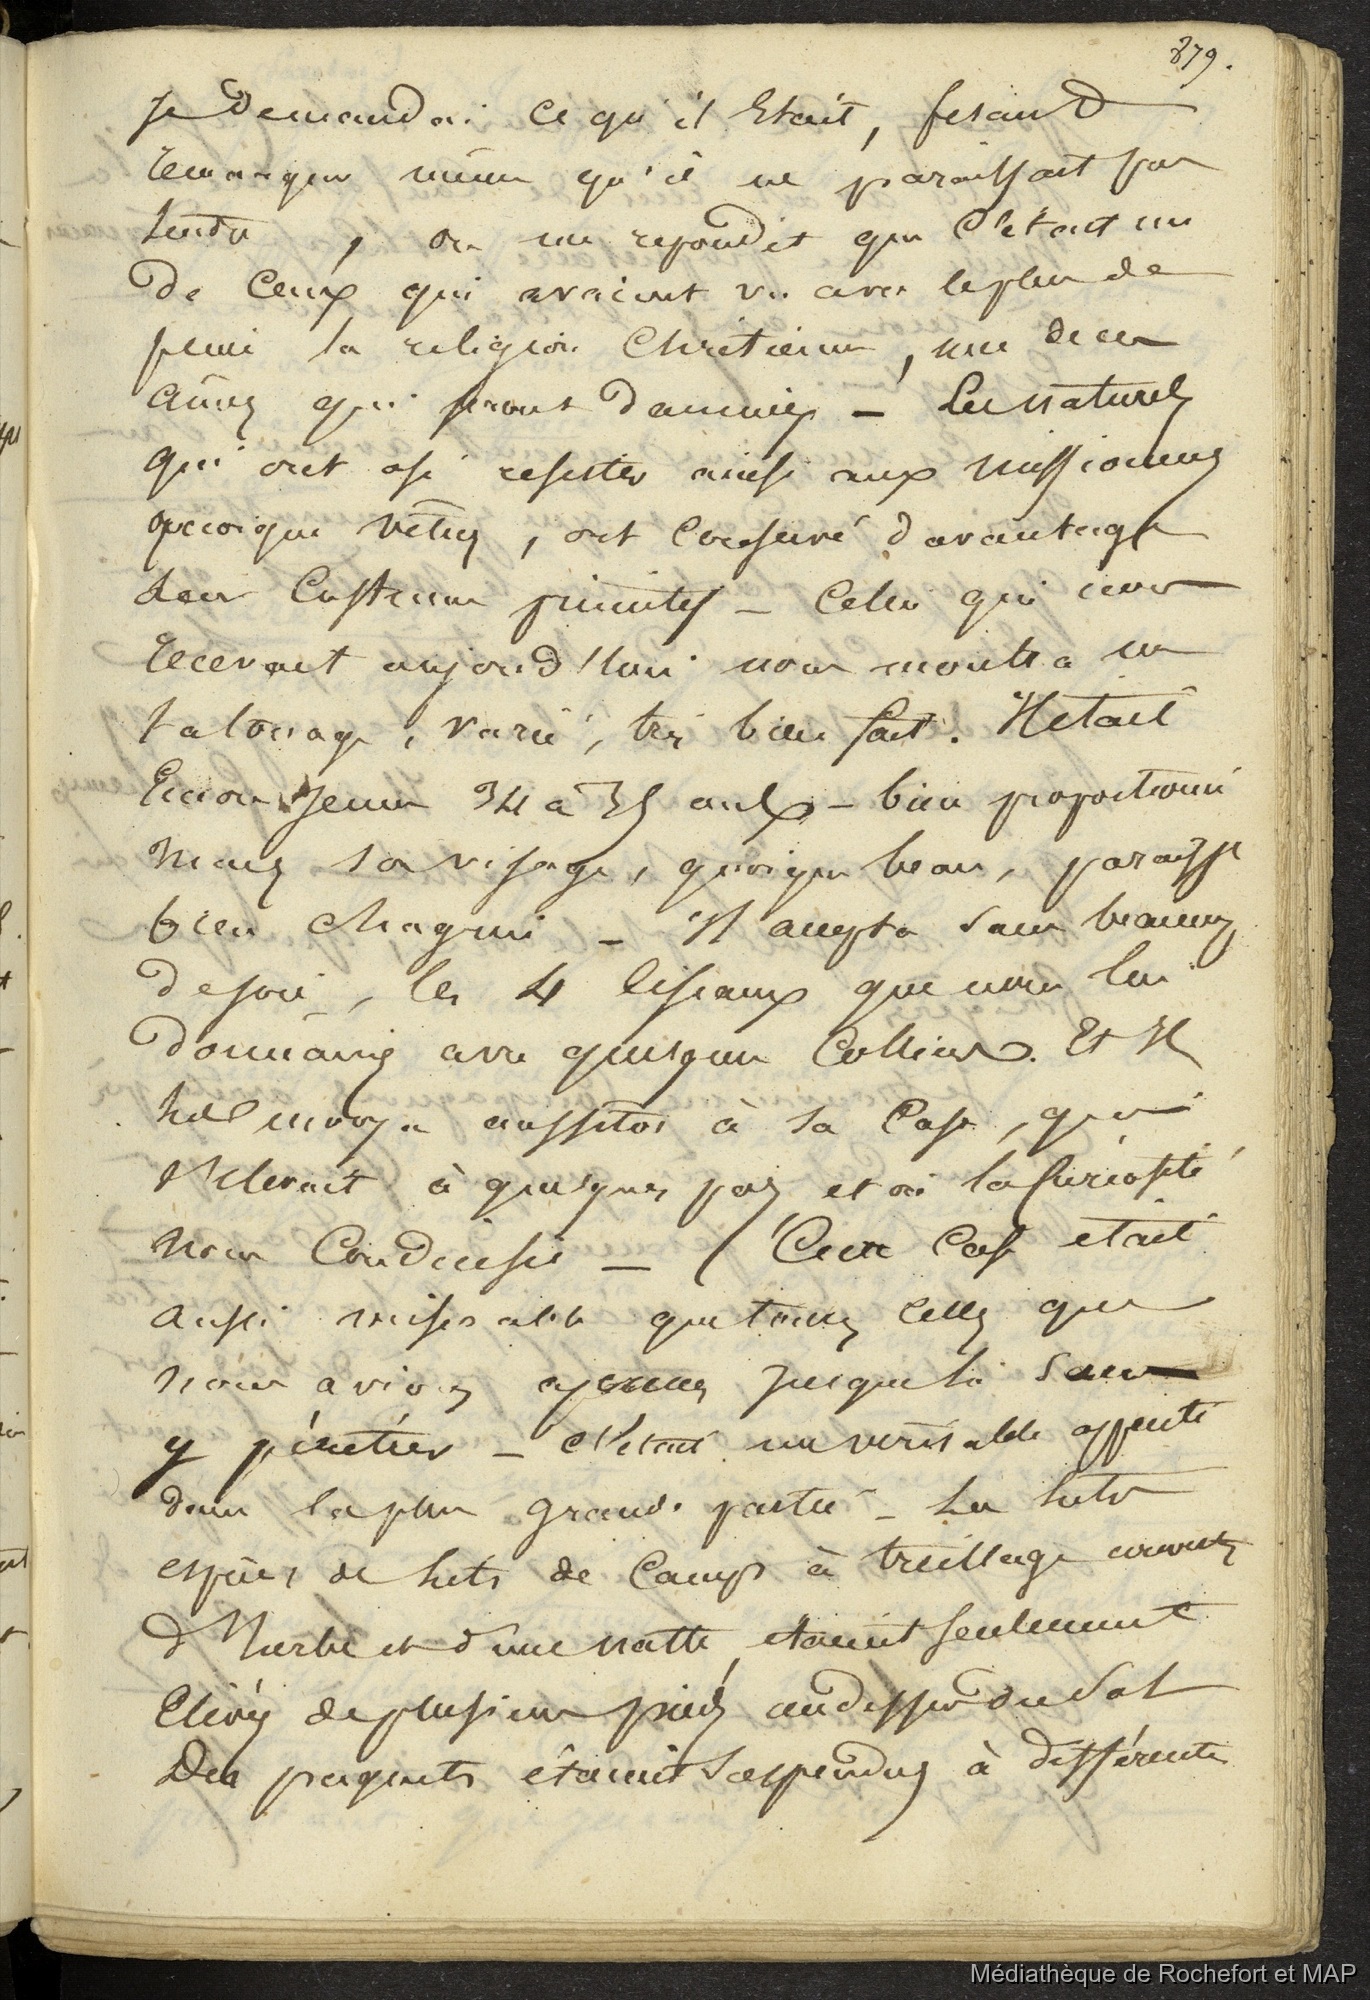 879.
Je demandai ce qu'il etait, fesant
remarquer même qu'il ne paraissait pas
tondu, on me repondit que c'etait un
de ceux qui avaient vu avec le plus de
peine la religion Chrétienne, une de ces
âmes qui seront damnées – Les naturels
qui ont osé resister ainsi aux missionnes
quoique vetus, ont conservé davantage
leur Costume primitif – Celui qui nous
recevait aujourd'hui nous montra un
tatouage, varié, très bien fait. Il etait
Encore Jeune 34 a 35 ans – bien proportionné
mais son visage, quoique beau, paraissait
bien chagrin – Il accepta sans beaucoup
de joie, les 4 ciseaux que nous lui
donnâmes avec quelques Colliers. Et Il
les envoya aussitot à sa Case, qui
s'elevait à quelques pas, et où la Curiosité
nous Conduisit – Cette Case etait
aussi miserable que toutes celles que
nous avions apperçues jusque là sans
y pénétrer – C'était un veritable appenti
dans la plus grande partie – Les lits
espèces de lits de Camp à treillage couverts
d'herbe et d'une natte, etaient seulement
élévés de plusieurs pieds audessus du Sol
Des paquets étaient Suspendus à différents
Médiathèque de Rochefort et MAP